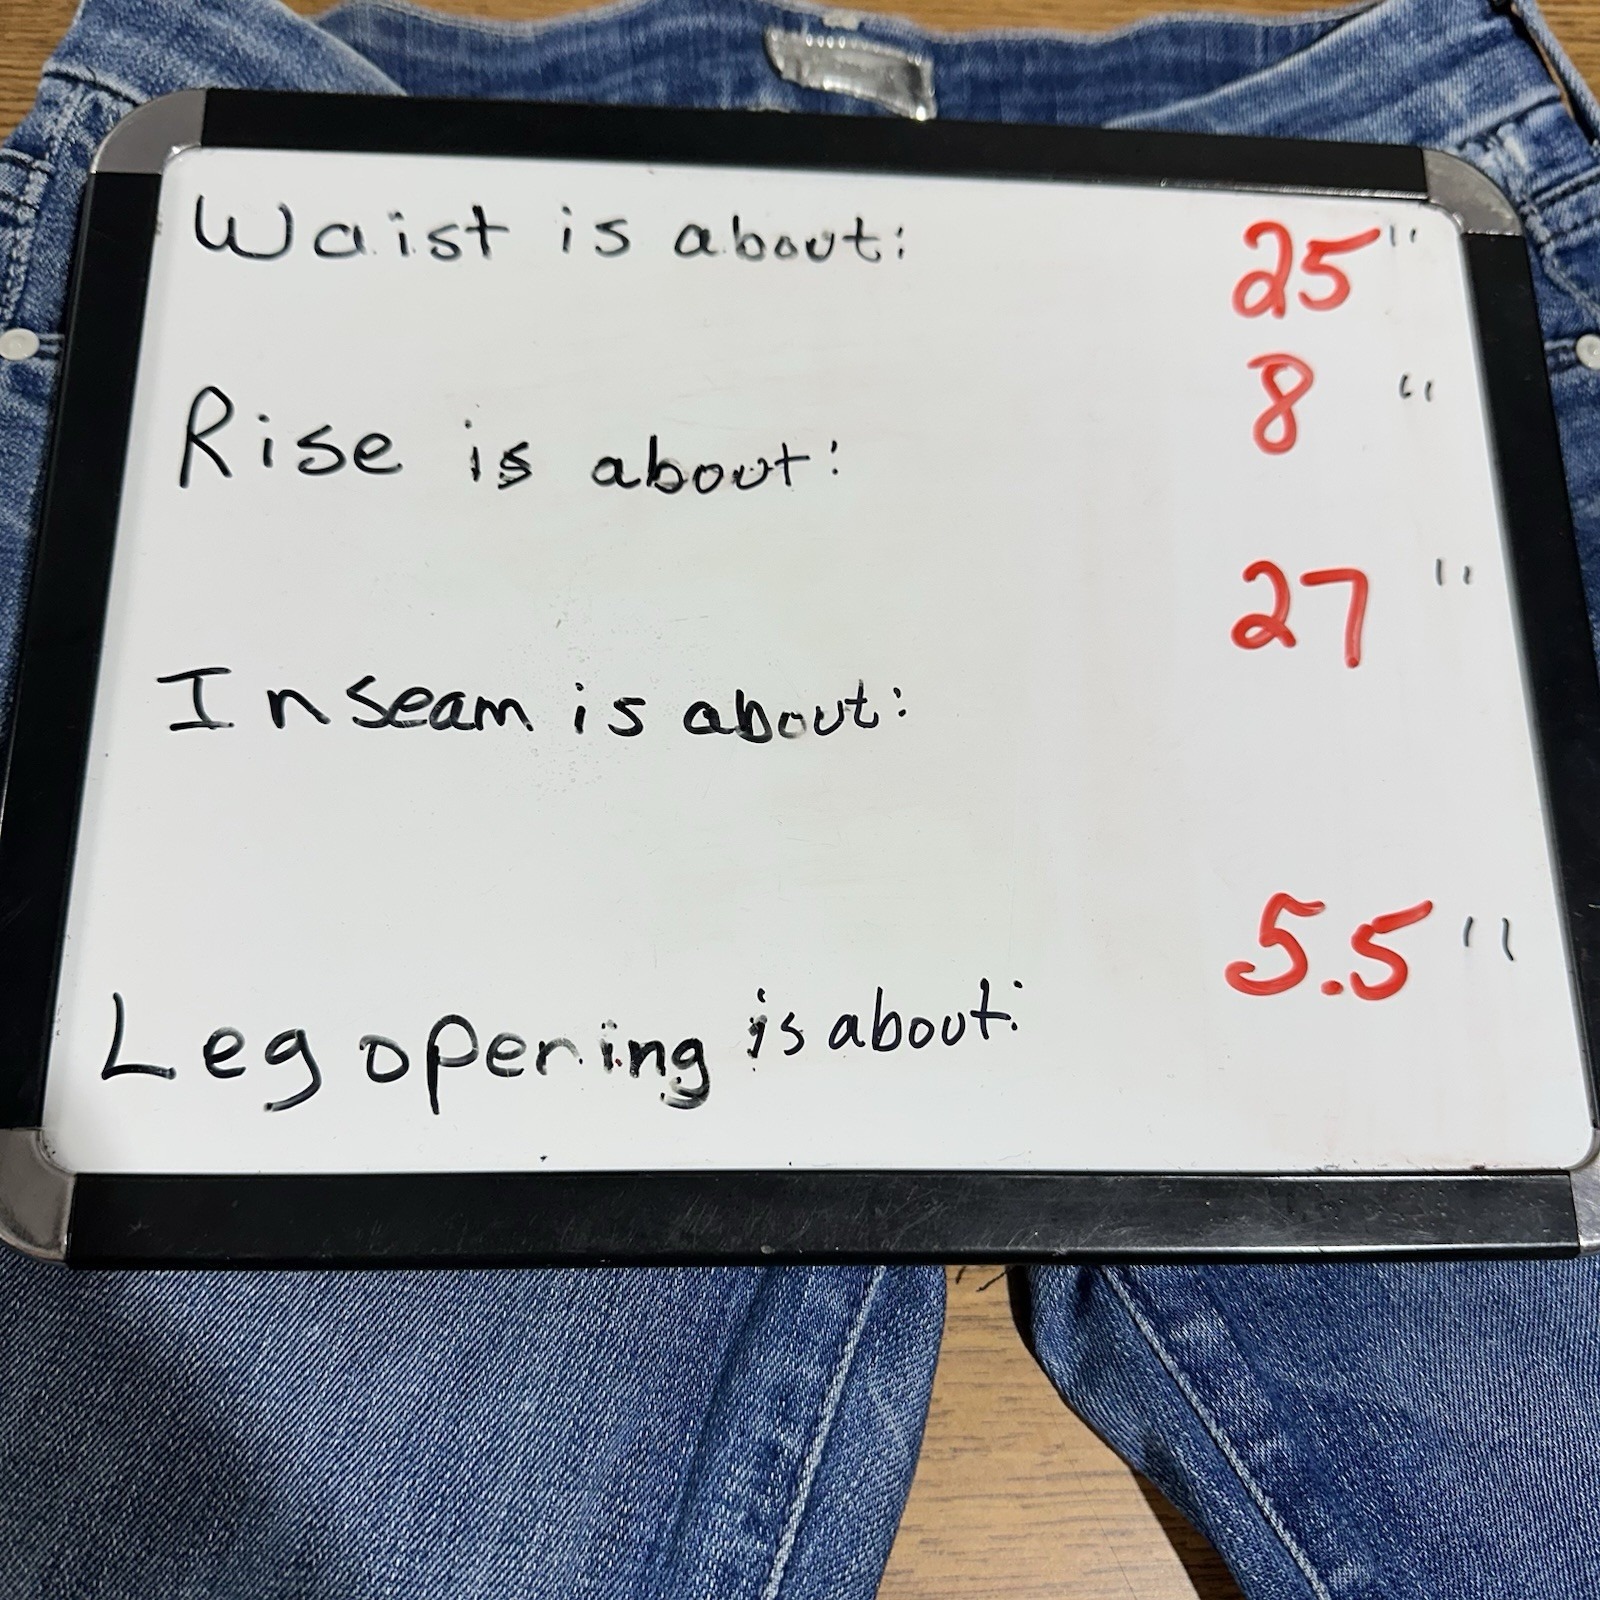 Waist is about: 25"
Rise is about: 8 "
Inseam is about: 27 "
Leg opening is about: 5.5 "